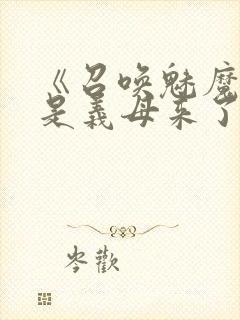 《召唤魅魔
是義母来了
岑歡